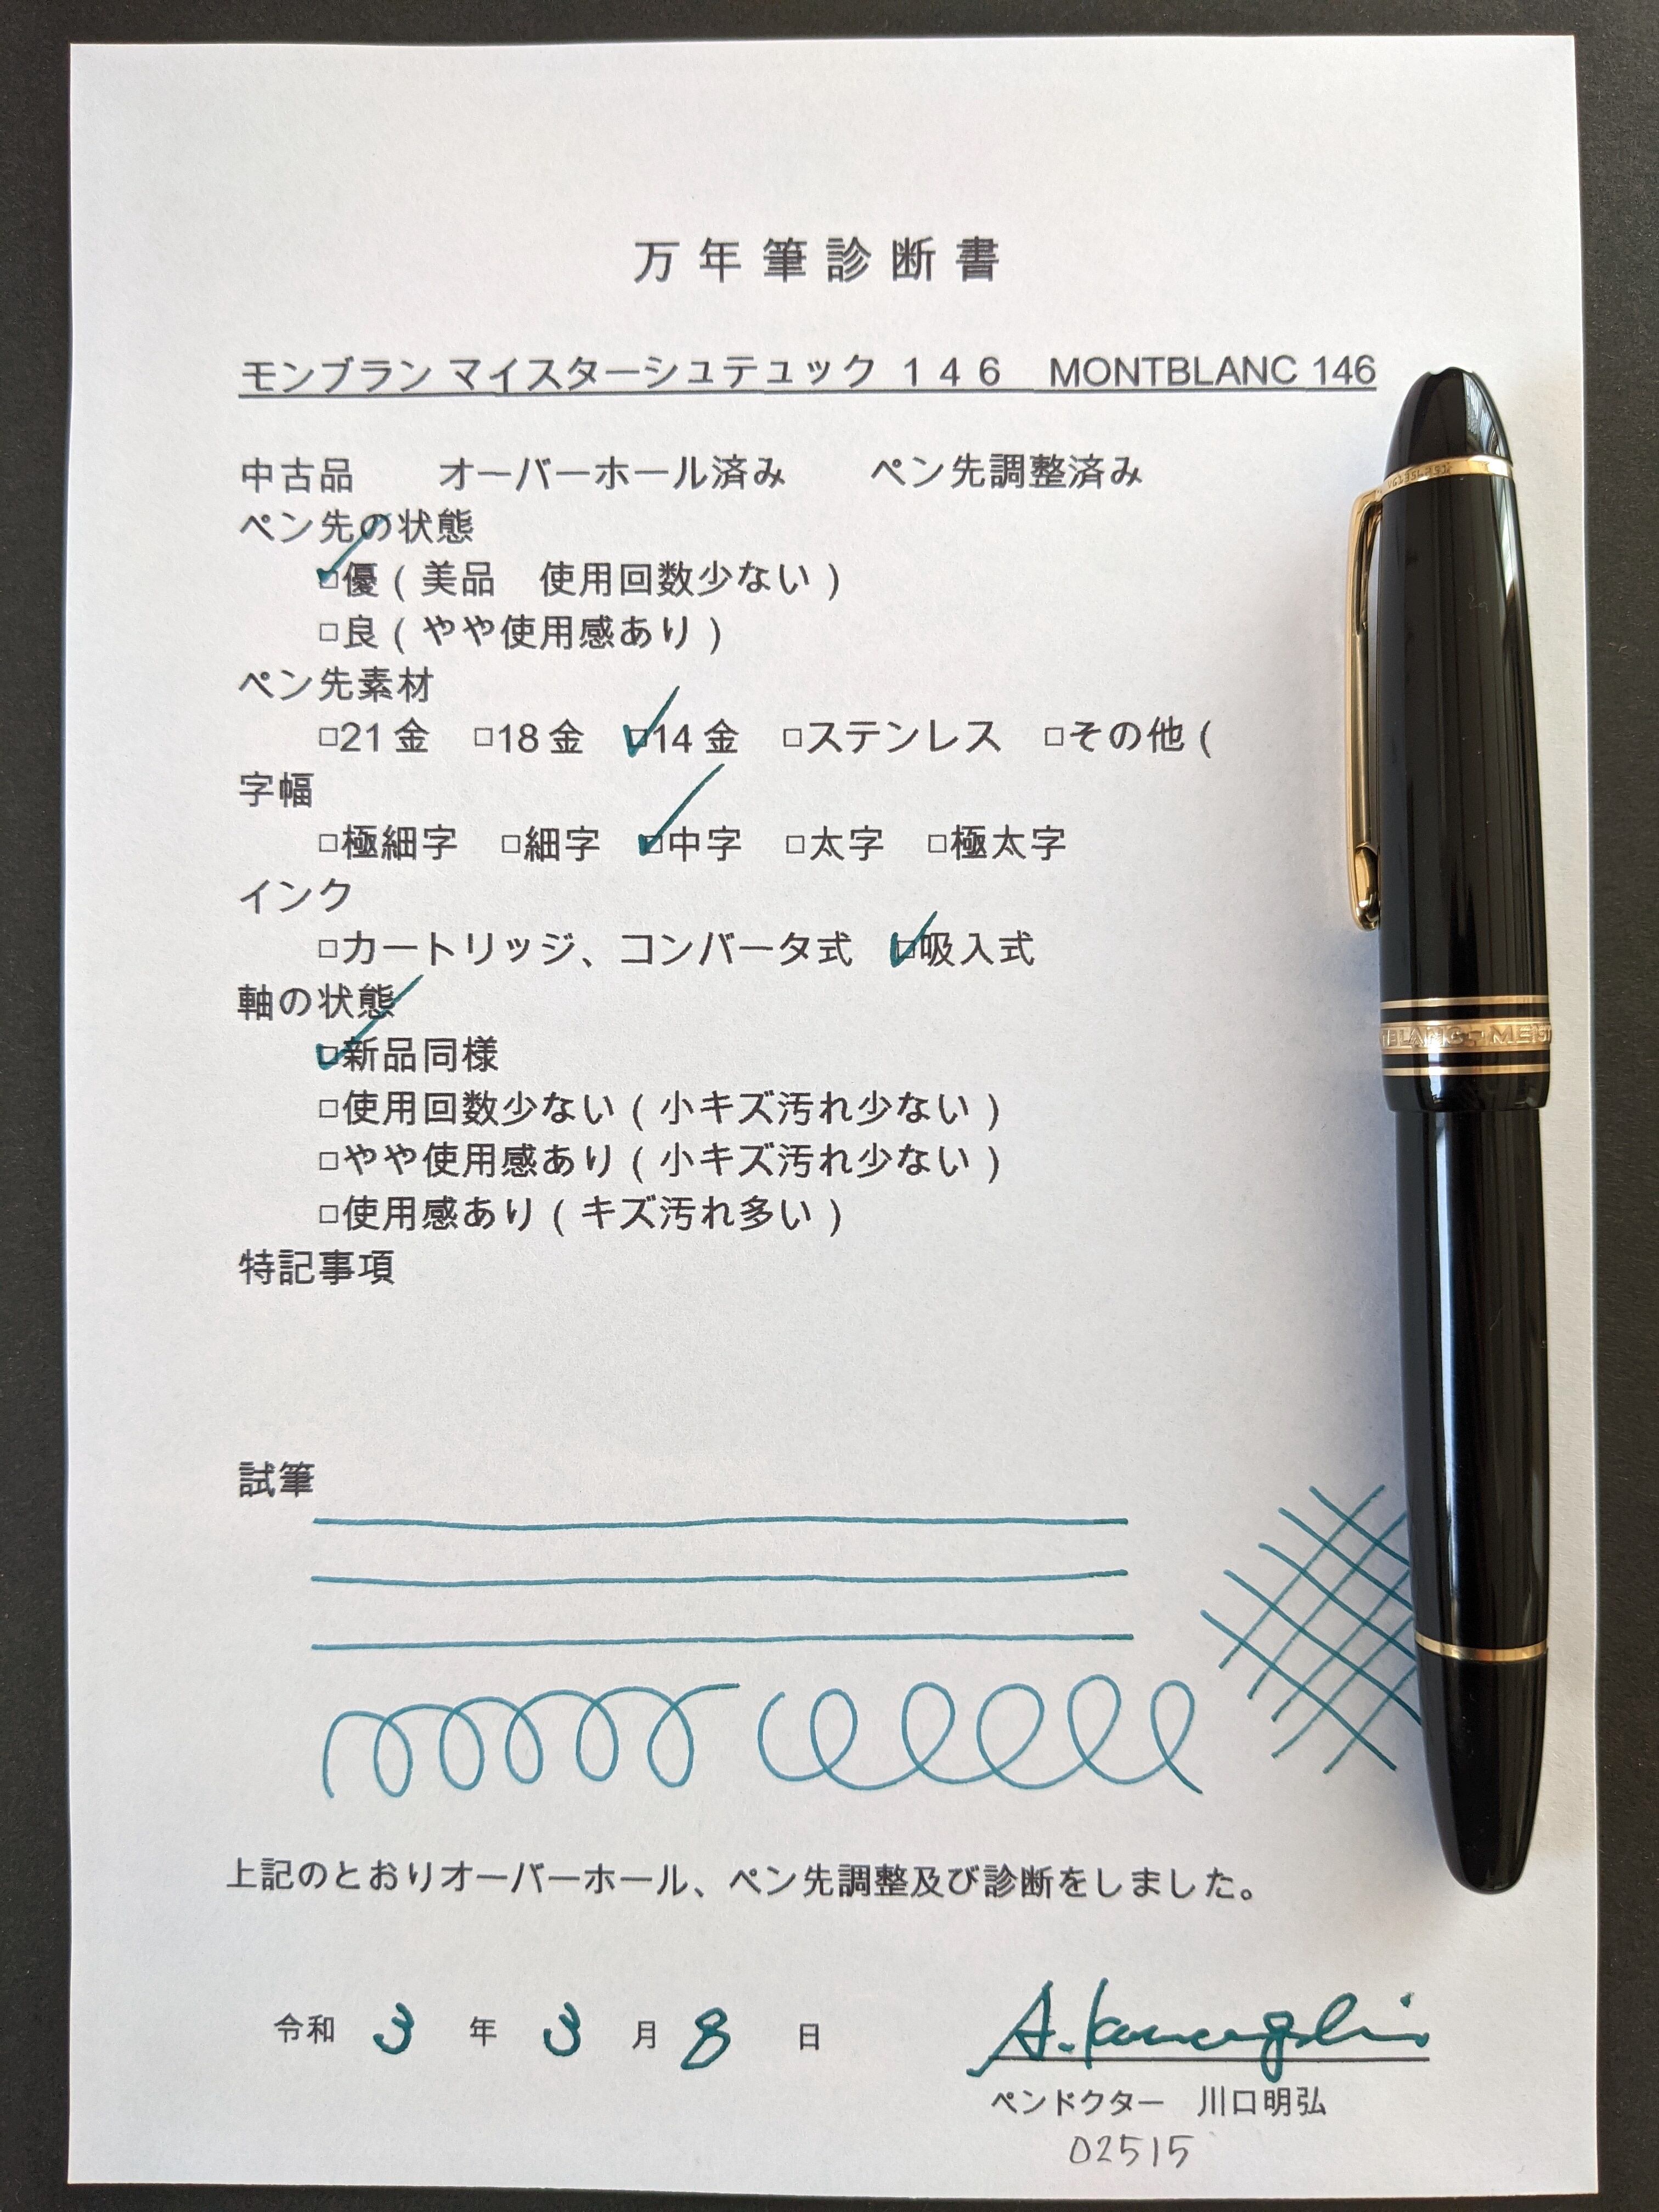 万年筆診断書
モンブラン マイスターシュテュック １４６　MONTBLANC 146
中古品　　オーバーホール済み　　ペン先調整済み
ペン先の状態
☑優（美品　使用回数少ない）
□良（やや使用感あり）
ペン先素材
□21金　□18金　☑14金　□ステンレス　□その他（
字幅
□極細字　□細字　☑中字　□太字　□極太字
インク
□カートリッジ、コンバータ式　☑吸入式
軸の状態
☑新品同様
□使用回数少ない（小キズ汚れ少ない）
□やや使用感あり（小キズ汚れ少ない）
□使用感あり（キズ汚れ多い）
特記事項
試筆
上記のとおりオーバーホール、ペン先調整及び診断をしました。
令和 3 年 3 月 8 日
A. Kawaguchi
ペンドクター　川口明弘
02515
BLANC - MEIS